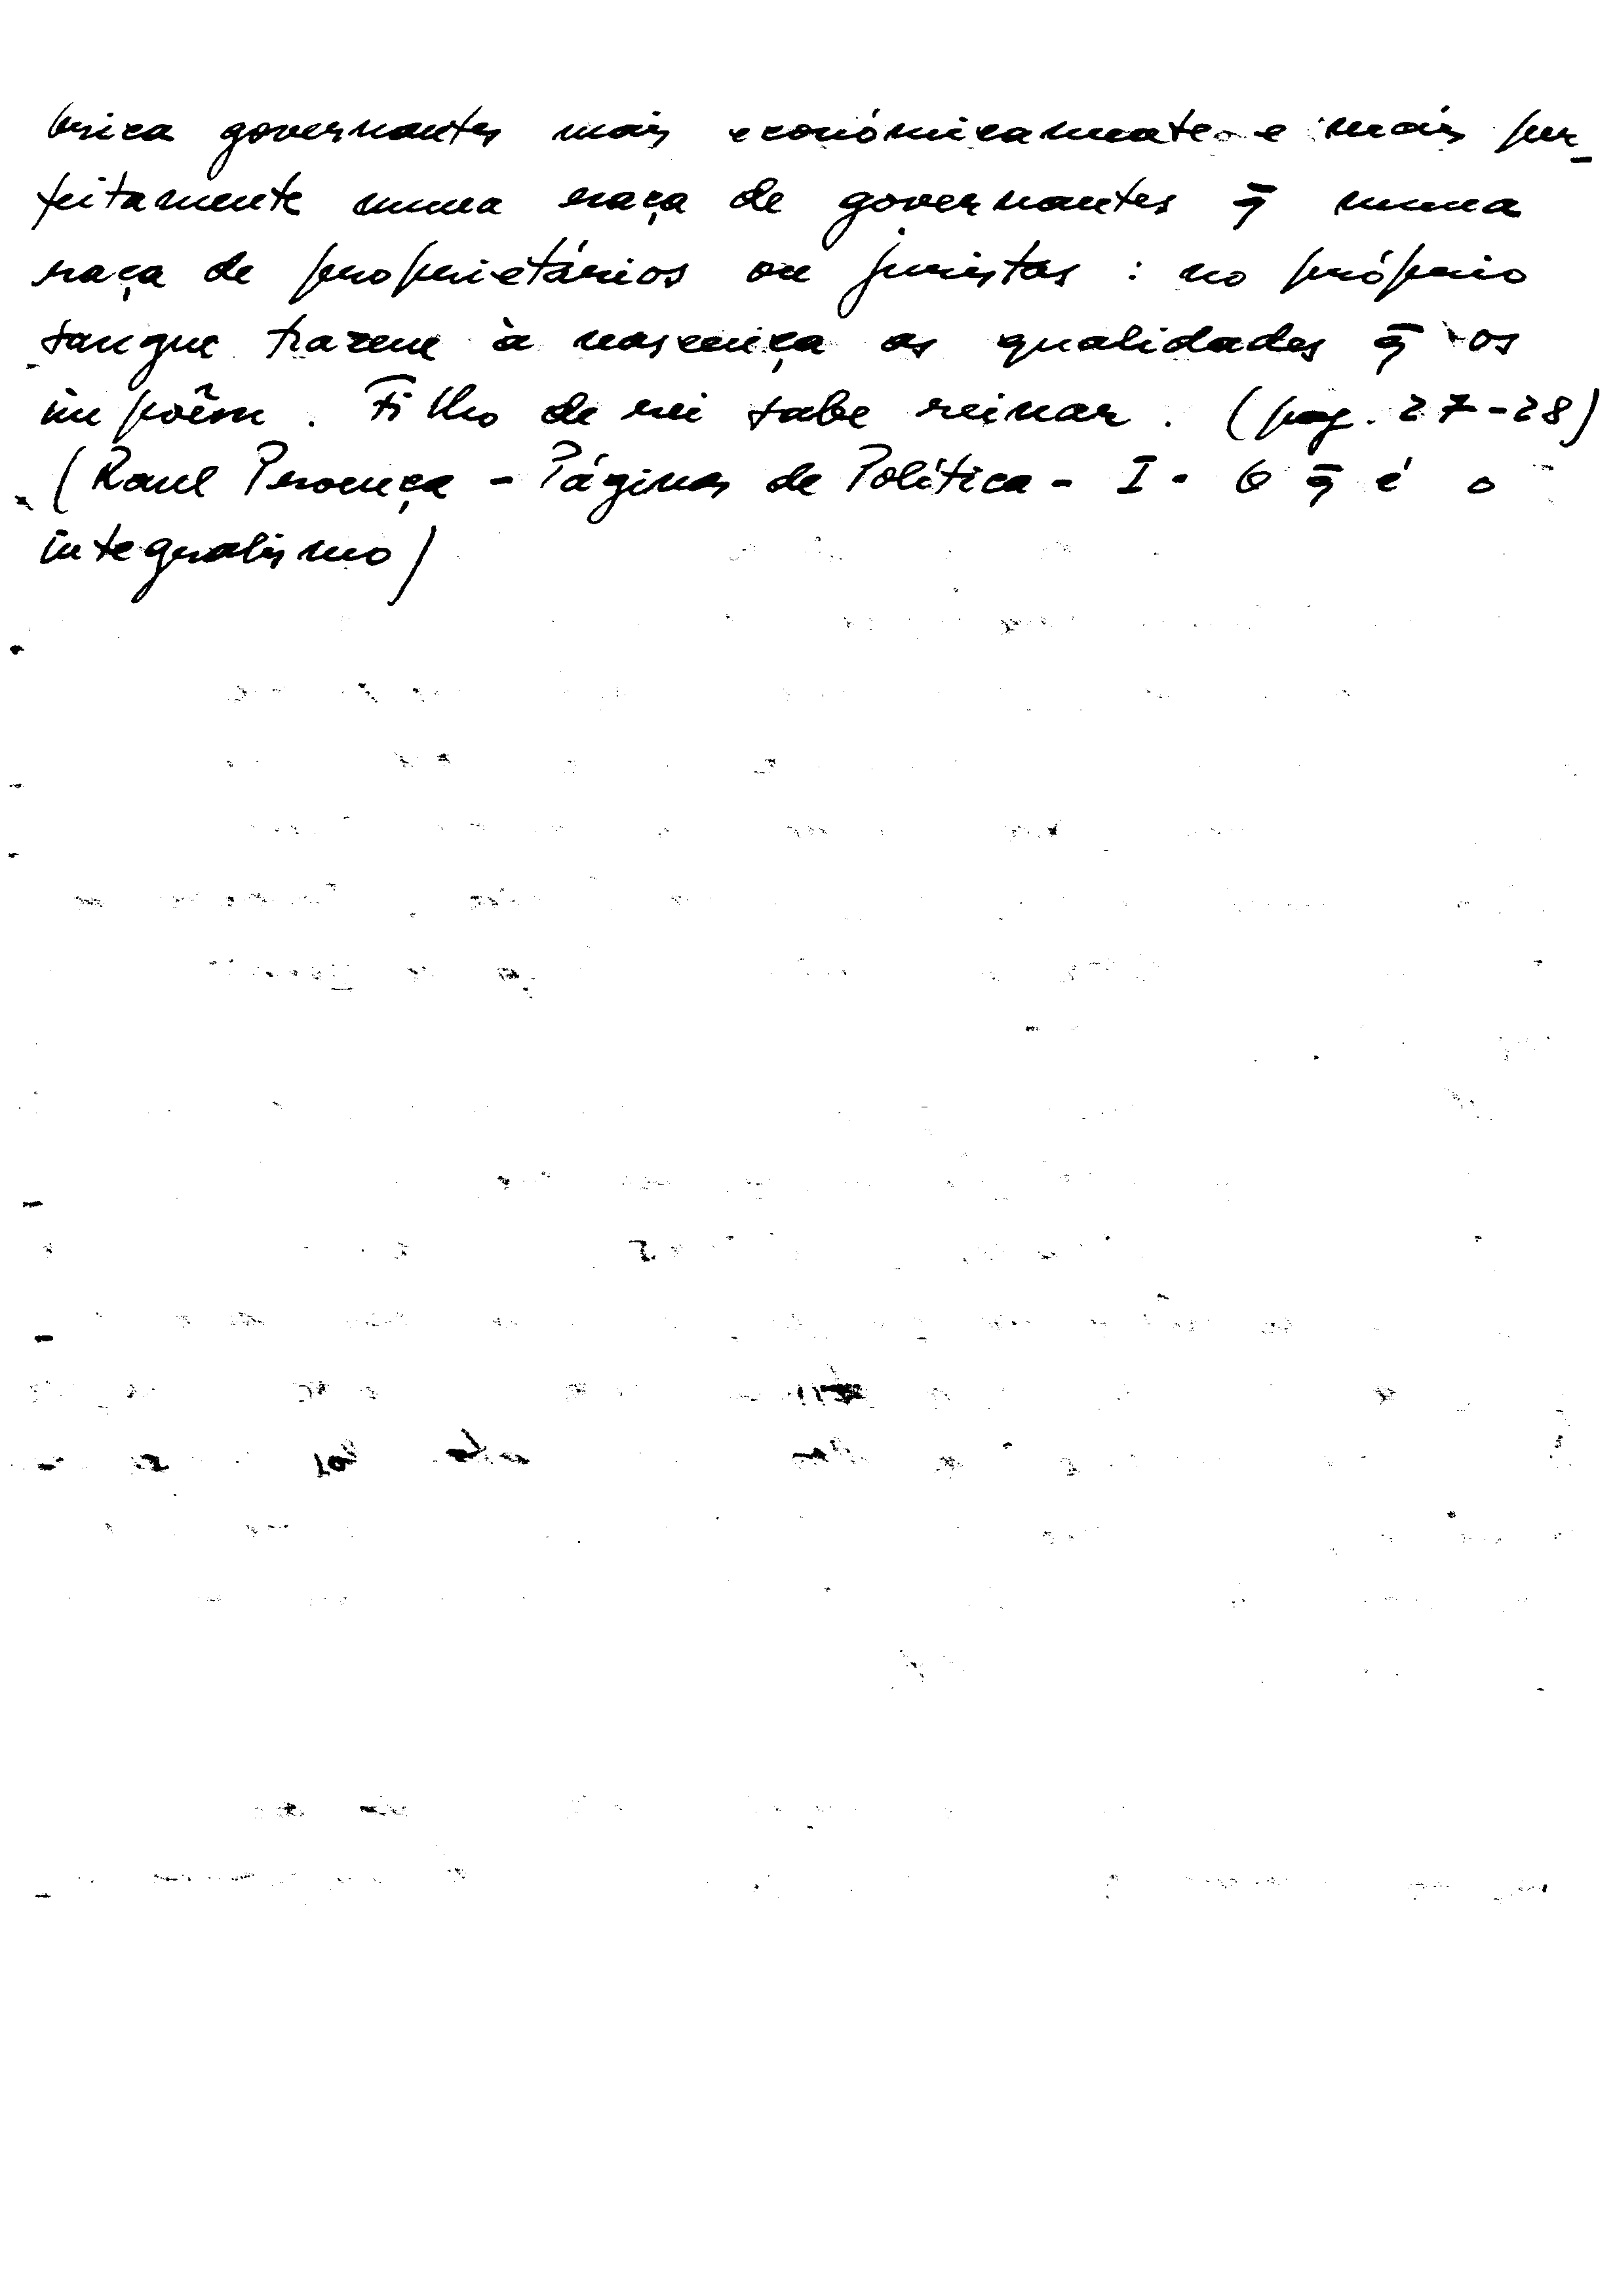 brica governantes mais económicamente e mais per-
feitamente numa raça de governantes q̄ numa
raça de proprietários ou juristas : no próprio
sangue trazem à nascença as qualidades q̄ os
impõem . Filho de rei sabe reinar . (pag. 27-28)
(Raul Proença - Páginas de Política - I - O q̄ é o
integralismo)